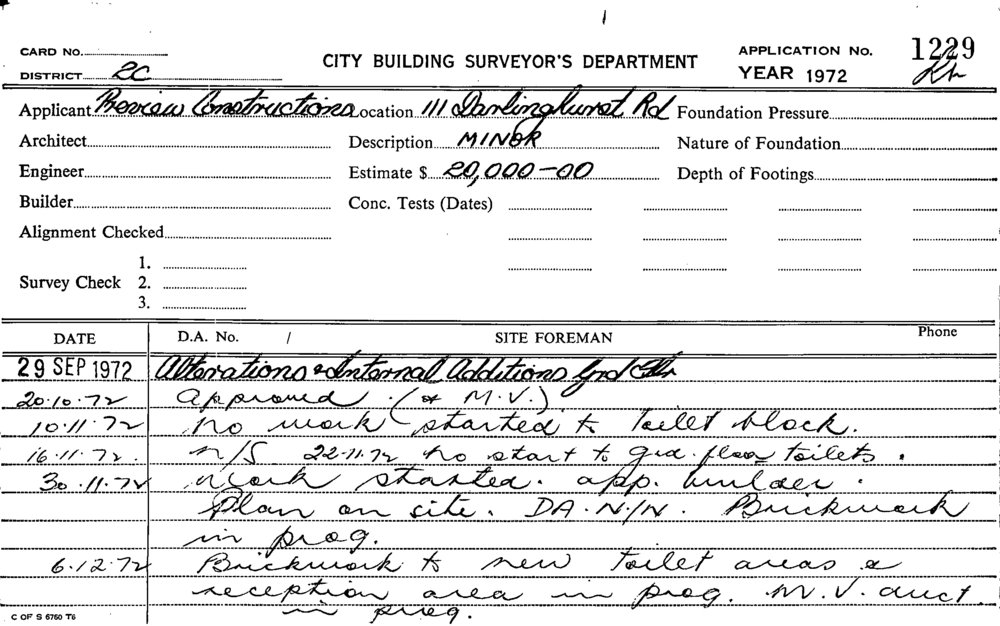 CARD No.
DISTRICT 2C
CITY BUILDING SURVEYOR'S DEPARTMENT
APPLICATION No. 1229
YEAR 1972
Applicant Preview Constructions Location 111 Darlinghurst Rd Foundation Pressure
Architect Description MINOR Nature of Foundation
Engineer Estimate $ 20,000-00 Depth of Footings
Builder Conc. Tests (Dates)
Alignment Checked
1.
Survey Check 2.
3.
DATE D.A. No. / SITE FOREMAN Phone
29 SEP 1972 Alterations & Internal Additions Grd Flr
20.10.72 Approved. (& M.V.)
10.11.72 no work started to toilet block.
16.11.72. N/S 22.11.72 no start to grd. floor toilets.
30.11.72 work started. app. builder.
Plan on site. DA. N/N. Brickwork
in prog.
6.12.72 Brickwork to new toilet areas &
reception area in prog. M.V. duct.
in prog.
C OF S 6760 T6